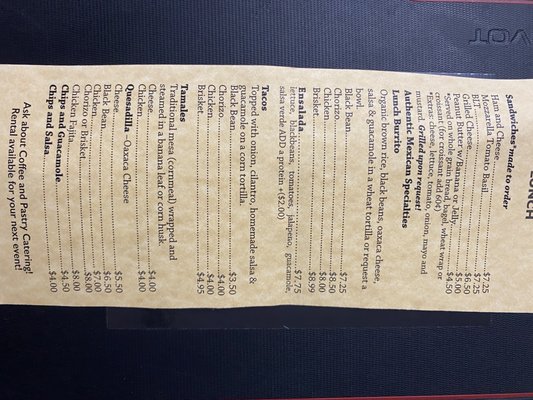 LUNCH
Sandwiches*made to order
Ham and Cheese.....$7.25
Mozzarella Tomato Basil.....$7.25
BLT.....$7.25
Grilled Cheese.....$6.50
Peanut Butter w/Banana or Jelly.....$5.00
*Served on whole grain bread, bagel, wheat wrap or
croissant (for croissant add 60¢)
*Extras: cheese, lettuce, tomato, onion, mayo and
mustard.
Grilled upon request!
Authentic Mexican Specialties
Lunch Burrito
Organic brown rice, black beans, oaxaca cheese,
salsa & guacamole in a wheat tortilla or request a
bowl.
Black Bean.....$7.25
Chorizo.....$8.50
Chicken.....$8.00
Brisket.....$8.99
Ensalada.....$7.75
lettuce, blackbeans, tomatoes, jalapeno, guacamole,
salsa verde ADD a protein +($2.00)
Tacos
Topped with onion, cilantro, homemade salsa &
guacamole on a corn tortilla.
Black Bean.....$3.50
Chorizo.....$4.00
Chicken.....$4.00
Brisket.....$4.95
Tamales
Traditional mesa (cornmeal) wrapped and
steamed in a banana leaf or corn husk.
Cheese.....$4.00
Chicken.....$4.00
Quesadilla - Oaxaca Cheese
Cheese.....$5.50
Black Bean.....$6.50
Chicken.....$7.00
Chorizo or Brisket.....$8.00
Chicken Fajita.....$8.00
Chips and Guacamole.....$4.50
Chips and Salsa.....$4.00
Ask about Coffee and Pastry Catering!
Rental available for your next event!